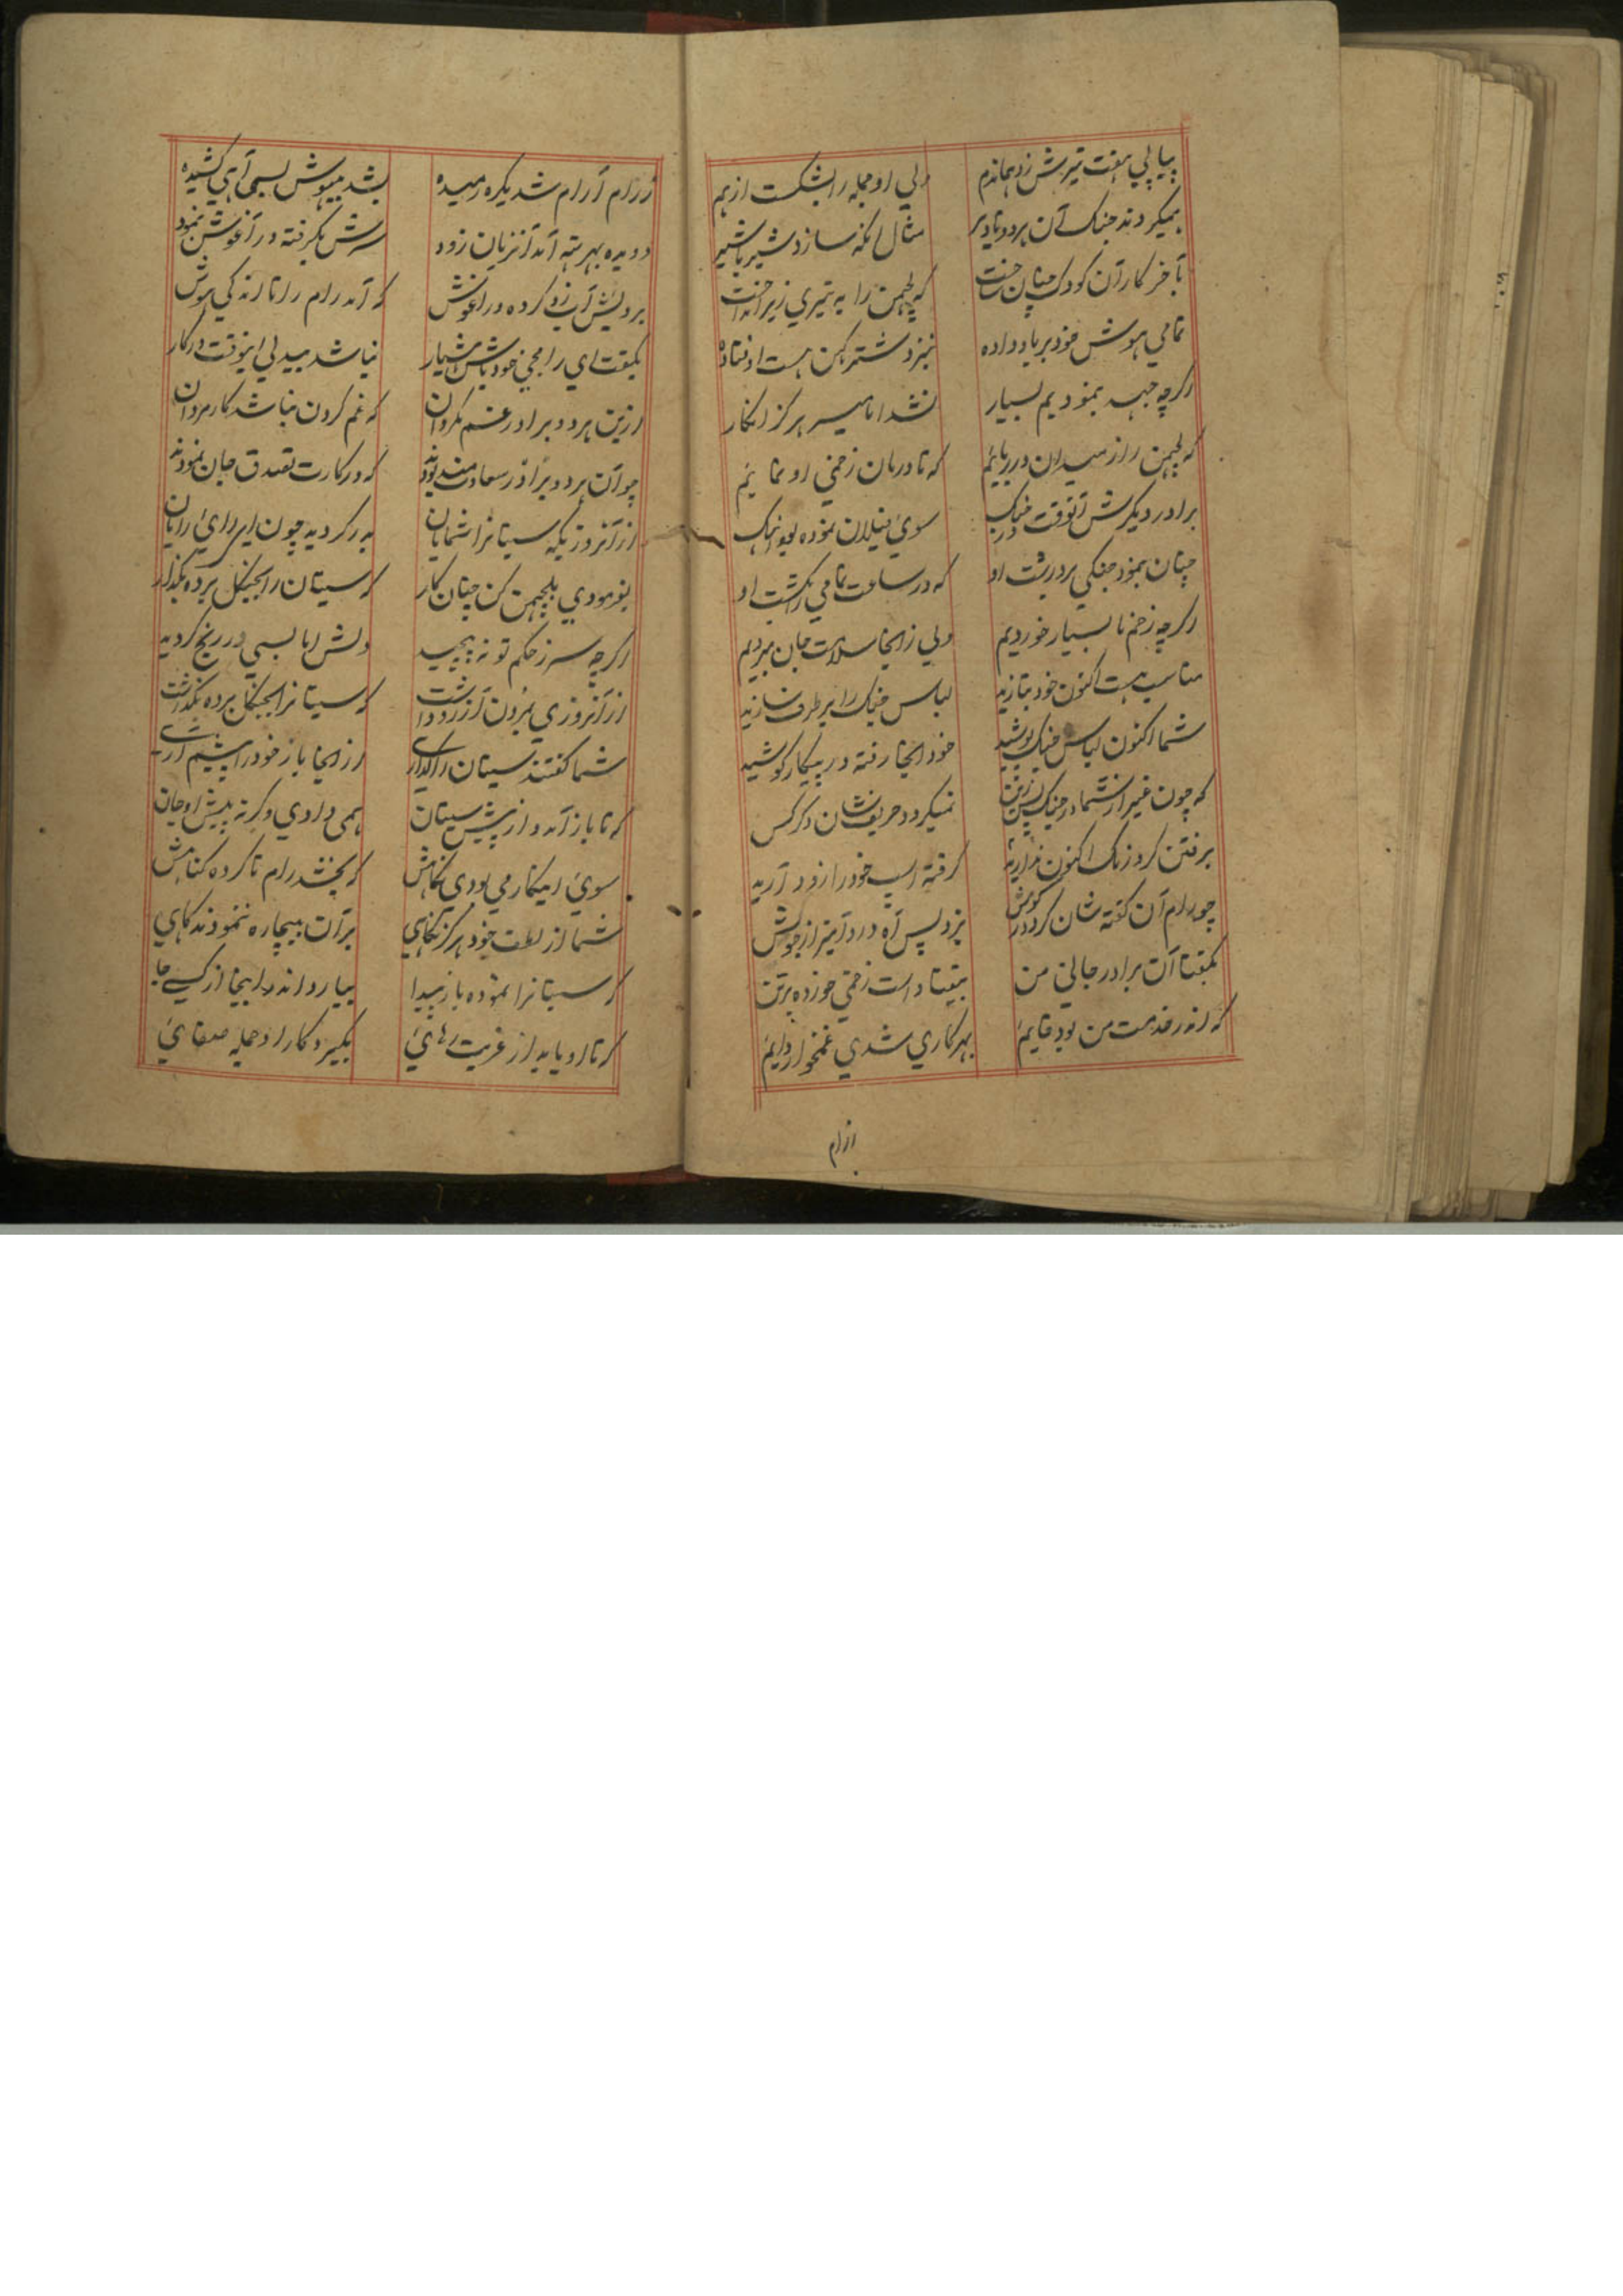 پیاپی هفت تیرش زد هماندم ولی او جمله را بشکست از هم
بمیکردند جنک آن هر دو تا دیر مثال آنکه سازد شیر با شیر
بآخر کار آن کودک چنان ساخت که لچمن را به تیری زیر انداخت
تمامی هوش خود بر باد داده بنزد شترکهن هست اوفتاده
اکرچه جهد بنمودیم بسیار نشد اما میسر هرکز انکار
که لچمن را از میدان در ربائیم که تا درمان زخمی او نمائیم
برادر دیکرش آنوقت در جنک سوی فیلان نموده بود
چنان بنمود جنکی پر درشت او که در ساعت تمامی را بکشت او
اکرچه زخم ما بسیار خوردیم ولی زانجا سلامت جان ببردیم
مناسب هست اکنون خود بتازید لباس جنک را بر طرف سازید
شما اکنون لباس جنک پوشید خود آنجا رفته در پیکار کوشید
که چون غیر از شما در جنک نمیکردد حریف شان دکر کس
برفتن کرد زنک اکنون کرفته اسپ خود را زود آرید
چو رام آن کفته شان کرد در کوش بزد پس آه درد آمیز از جوش
بکفتا آن برادر جانی من بیفتاد است زخمی خورده بر تن
که اندر خدمت من بود قایم بهر کاری شدی غمخوار دایم
ازرام
ازرام آرام شد یکره رمیده بشد بیهوش بسی آهی کشیده
دویده بهرته آمد آنزمان زود سرش بکرفته در آغوش بنمود
برویش آب زد کرده در آغوش که آمد رام را تا اندکی هوش
بکفت ای رامجی خود باش هشیار نباشد بیدلی اینوقت درکار
ازین هر دو برادر غم مکردان که غم کردن نباشد کار مردان
چو آن هر دو برادر سعادتمند بودند که در کارت تصدق جان نمودند
از آنروزیکه سیتا را شمایان بدر کردید چون ای رای رایان
بفرمودی بلچمن کن چنان کار که سیتان را بجنکل برده بکذار
اکرچه سر ز حکم تو نه پیچید دلش اما بسی در رنج کردید
از آنروزی بمردن آرزو داشت که سیتا را بجنکل برده بکذاشت
شما کفتند سیتان را از اینجا باز خود را پیشم آری
که تا باز آمد او از پیش سیتان همی دادی وکرنه پیش او جان
سوی اینکار می بودی نکاهش که بخشد رام تا کرده کناهش
شما از لطف خود هرکز نکاهی بر آن بیچاره ننمودند کاهی
که سیتا را نموده باز پیدا بیارد اندر اینجا از کسی جا
که تا او یابد از غربت رهائی بکیرد کار او جمله صفائی